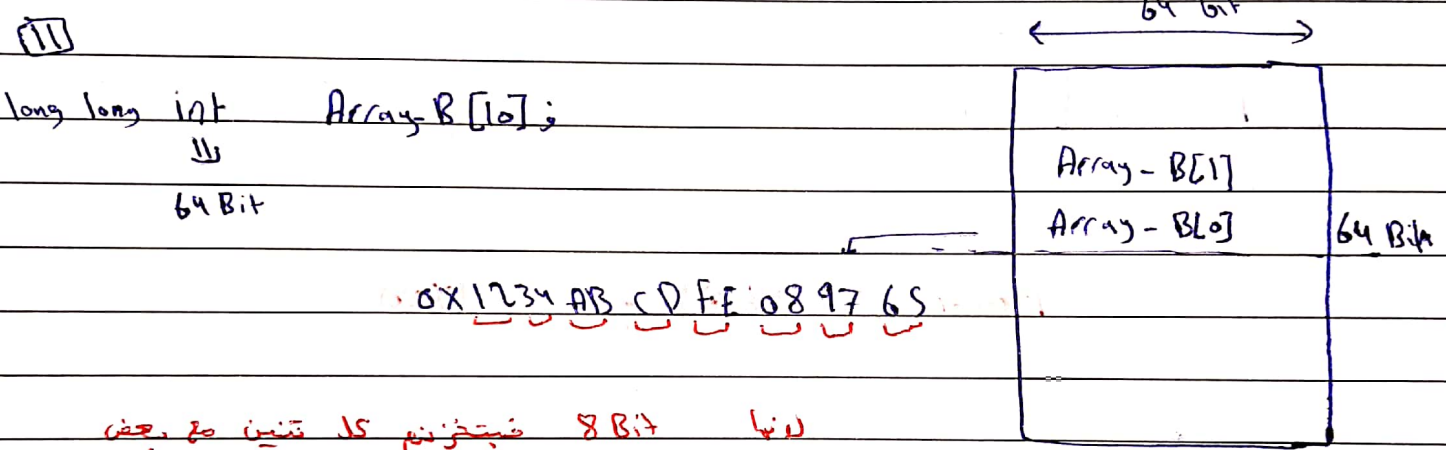 64 bit
11
long long int Array-B[10];
Array-B[1]
64 Bit
Array-B[0]
64 Bit
0x1234 AB CD FE 08 97 65
لانها 8 Bit فبتخزنهم كل تنين مع بعض